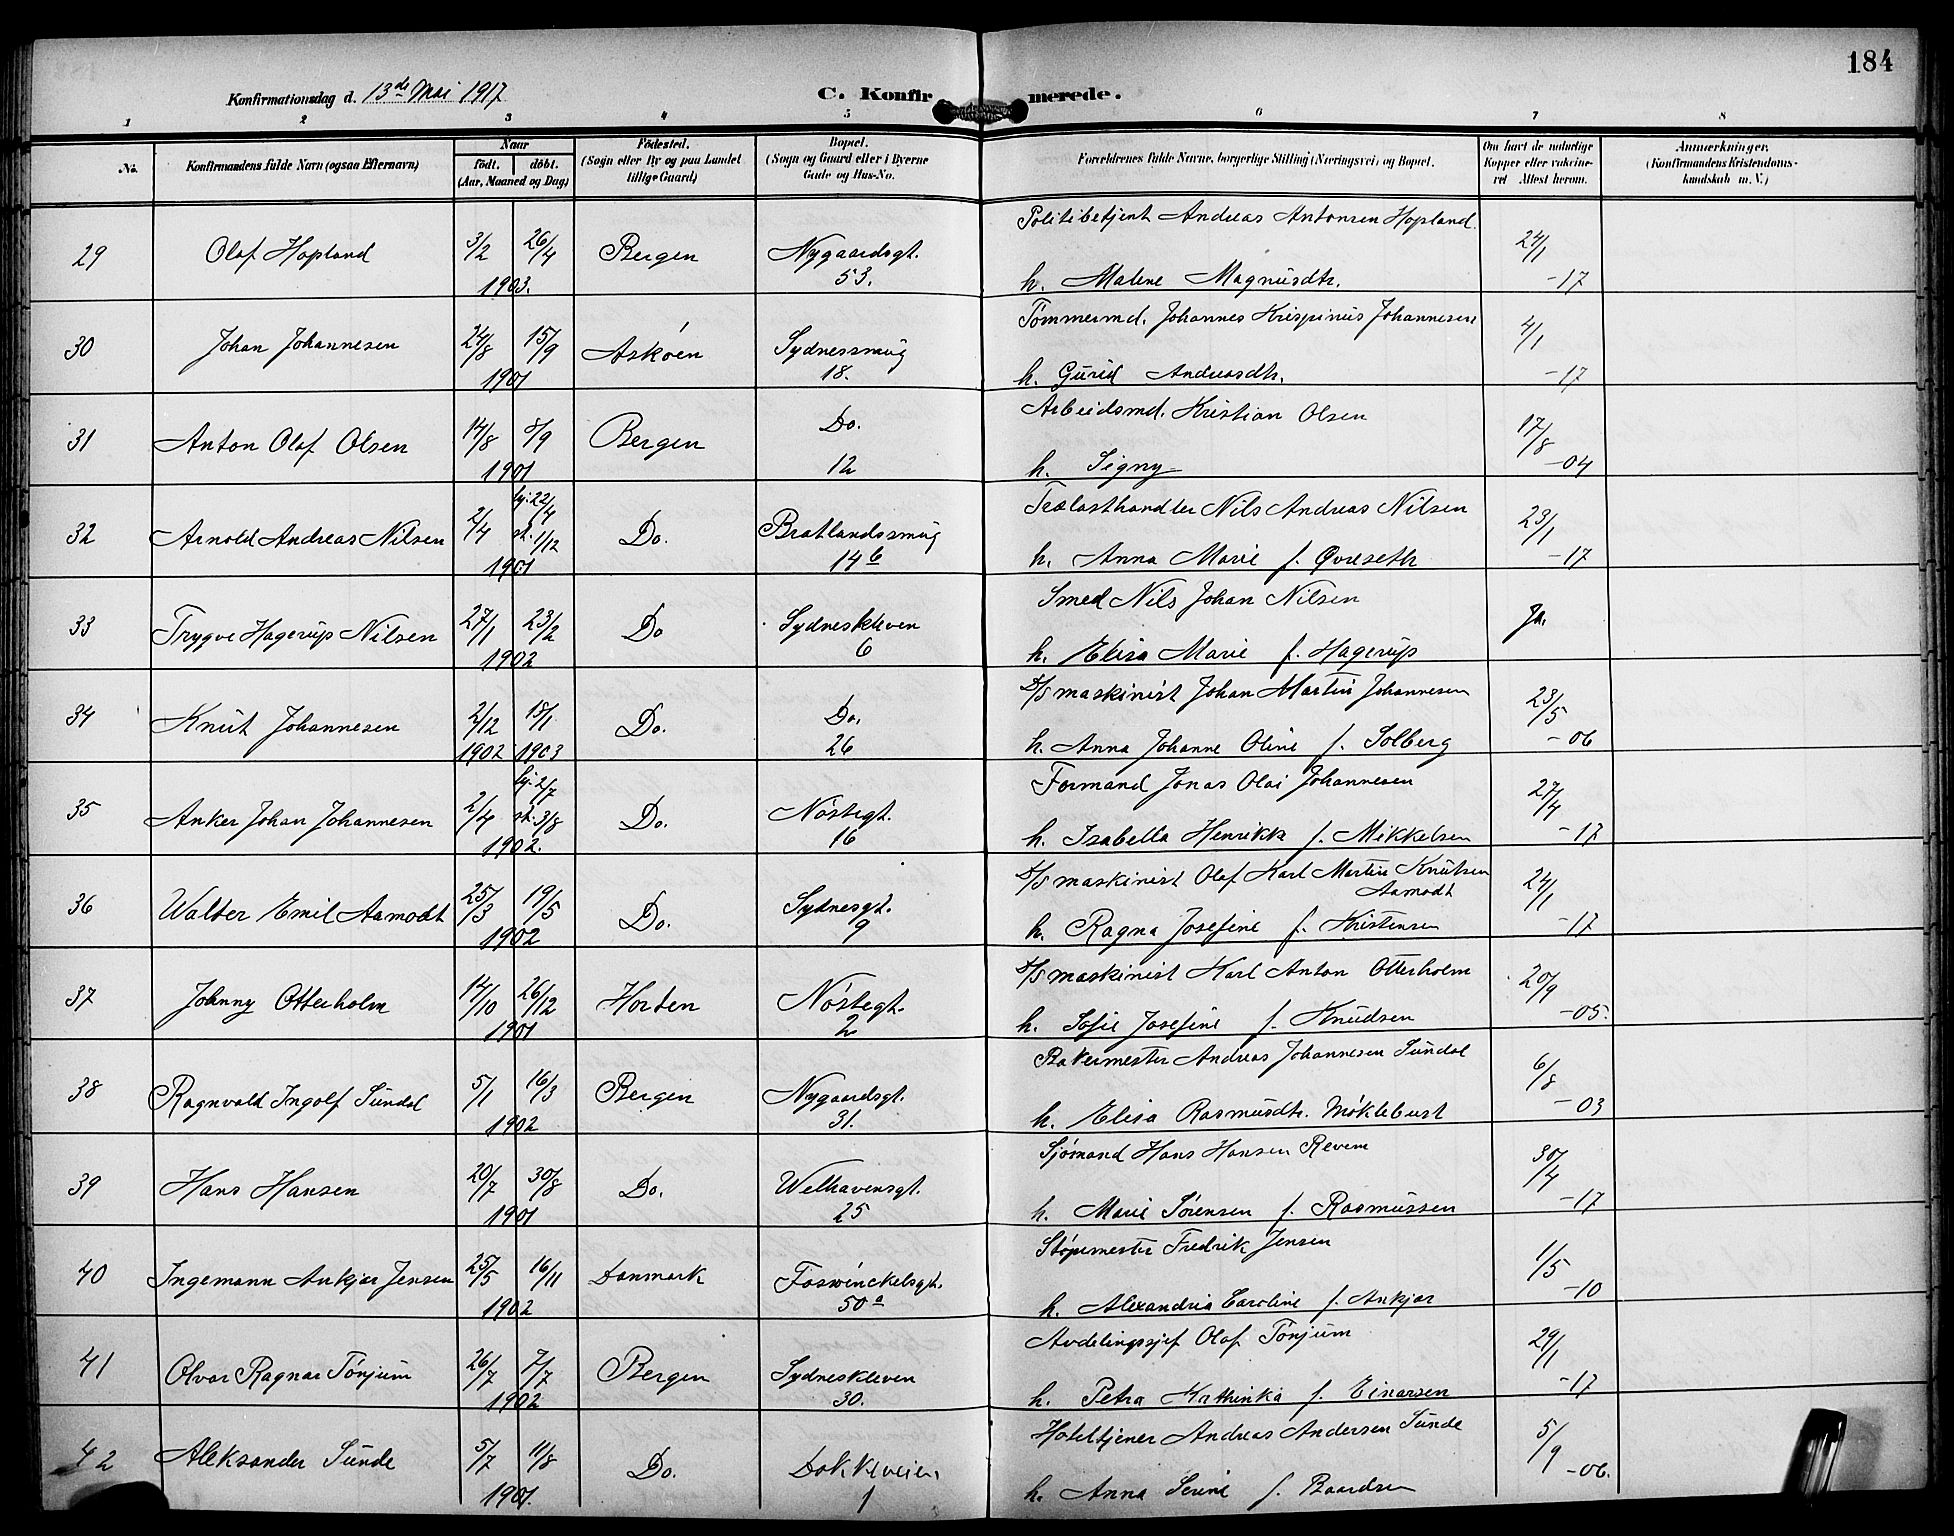 184
Konfirmationsdag d. 13de Mai 1917
C. Konfirmerede.
1 2 3 4 5 6 7 8
No. Konfirmandens fulde Navn (ogsaa Efternavn) Naar født. døbt. (Aar, Maaned og Dag) Fødested. (Sogn eller By og paa Landet tillige Gaard) Bopæl. (Sogn og Gaard eller i Byerne Gade og Hus-No. Forældrenes fulde Navne, borgerlige Stilling (Næringsvei) og Bopæl. Om havt de naturlige Kopper eller vakcineret Attest herom. Anmærkninger. (Konfirmandens Kristendomskundskab m. V.)
29 Olaf Hopland 3/2 26/4 1903. Bergen Nygaardsgt. 53. Politibetjent Andreas Antonsen Hopland. 24/1 -17
h. Malene Magnusdtr.
30 Johan Johannesen 24/8 15/9 1901 Askøen Sydnessmug 18. Tømmermd. Johannes Krispinus Johannesen 4/1 -17
h. Gurid Andreasdtr.
31 Anton Olaf Olsen 14/8 8/9 1901 Bergen Do. 12 Arbeidsmd. Kristian Olsen 17/8 -04
h. Signy
32 Arnold Andreas Nilsen 2/4 hj. 22/4 st. 1/12 1901 Do. Bratlandssmug 14b Trælasthandler Nils Andreas Nilsen 23/1 -17
h. Anna Marie f. Øvreseth
33 Trygve Hagerup Nilsen 27/1 23/2 1902 Do Sydneskleven 6 Smed Nils Johan Nilsen Ja.
h. Elisa Marie f. Hagerup
34 Knut Johannesen 2/12 1902 18/1 1903 Do. Do. 26 D/S maskinist Johan Martin Johannesen 23/5 -06
h. Anna Johanne Oline f. Solberg
35 Anker Johan Johannesen 2/4 hj. 2/7 st. 3/8 1902. Do. Nøstegt. 16 Formand Jonas Olai Johannesen 27/4 -17
h. Isabella Henrikka f. Mikkelsen
36 Walter Emil Aamodt 25/3 19/5 1902 Do. Sydnesgt. 9 D/S maskinist Olaf Karl Martin Knutsen Aamodt 24/1 -17
h. Ragna Josefine f. Kristensen
37 Johnny Otterholm 14/10 26/12 1901 Horten Nøstegt. 2 D/S maskinist Karl Anton Otterholm 20/9 -05.
h. Sofie Josefine f. Knudsen
38 Ragnvald Ingolf Sundal 5/1 16/3 1902 Bergen Nygaardsgt. 31. Bakermester Andreas Johannesen Sundal 6/8 -03
h. Elisa Rasmusdtr. Møklebust
39 Hans Hansen 20/7 30/8 1901 Do. Welhavensgt. 25 Sjømand Hans Hansen Revem 30/4 -17
h. Marie Sørensen f. Rasmussen
40 Ingemann Ankjar Jensen 25/5 16/11 1902 Danmark Foswinckelsgt. 50a Støpemester Fredrik Jensen 1/5 -10
h. Alexandria Caroline f. Ankjar
41 Olvar Ragnar Tønjum 26/7 1902 Bergen Sydneskleven 30. Avdelingssjef Olaf Tønjum 29/1 -17
h. Petra Kathinka f. Einarsen
42 Aleksander Sunde 5/7 11/8 1901. Do. Dokkeveien 1 Hoteltjener Andreas Andersen Sunde 5/9 -06.
h. Anna Serine f. Baardsen